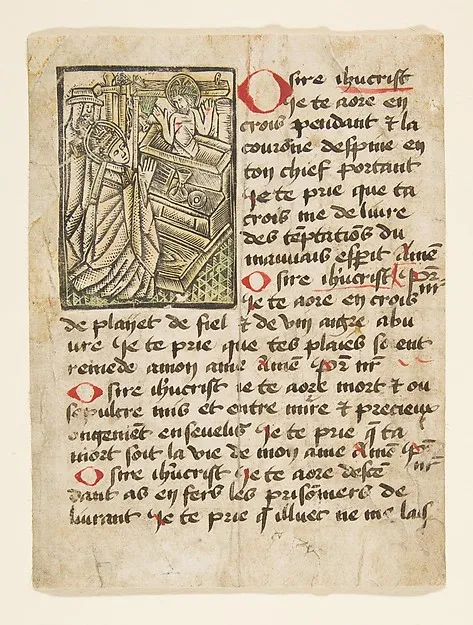 O sire ihucrist
Je te aore en
crois pendant & la
courone despine en
ton chief portant
Je te prie que ta
crois me deliure
des tẽptatiõs du
mauuais esprit Amẽ
O sire ihucrist Pr̃ nr̃
Je te aore en crois
de playet de fiel & de vin aigre abu
ure Je te prie que tes plaies soient
remede a mon ame Amẽ Pr̃ nr̃
O sire ihucrist ie te aore mort & ou
sepulcre mis et entre mire & precieux
ongement enseuelis Je te prie q̃ ta
mort soit la vie de mon ame Amẽ Pr̃ nr̃
O sire ihucrist Je te aore descẽ
dant as enfers les prisõniers de
liurant Je te prie q̃ illuec ne me lais